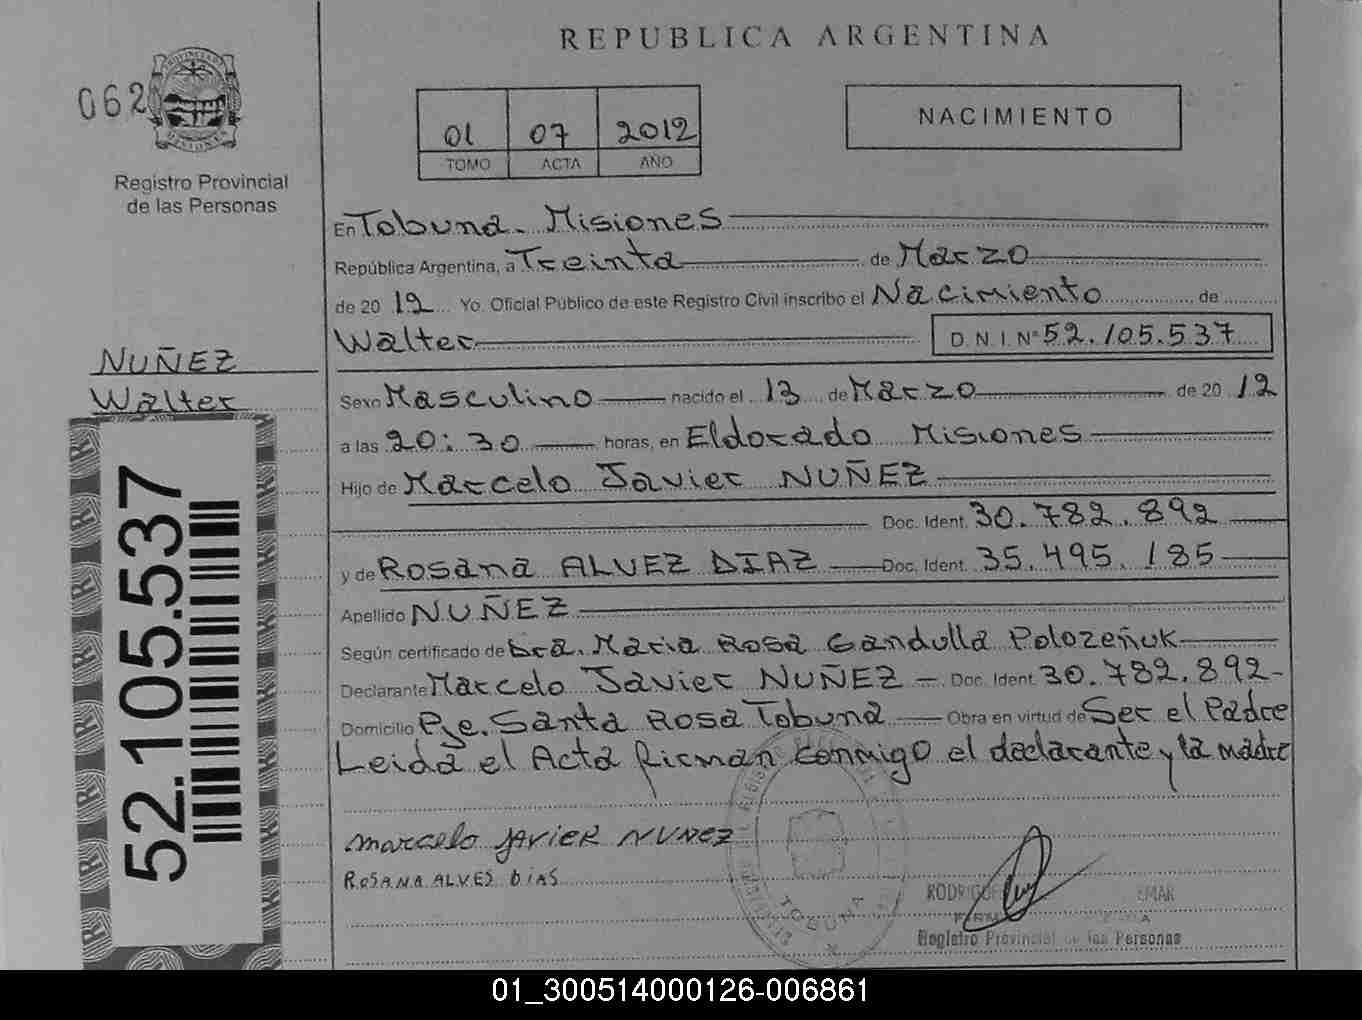 REPUBLICA ARGENTINA
062
PROVINCIA DE
MISIONES
Registro Provincial
de las Personas
01 07 2012
TOMO ACTA AÑO
NACIMIENTO
En Tobuna - Misiones
República Argentina, a Treinta de Marzo
de 20 12 Yo, Oficial Público de este Registro Civil inscribo el Nacimiento de
Walter D.N.I. Nº 52.105.537
NUÑEZ
Walter
52.105.537
Sexo Masculino nacido el 13 de Marzo de 20 12
a las 20:30 horas, en Eldorado Misiones
Hijo de Marcelo Javier NUÑEZ
Doc. Ident. 30.782.892
y de Rosana ALVEZ DIAZ Doc. Ident. 35.495.185
Apellido NUÑEZ
Según certificado de Dra. Maria Rosa Gandulla Polozeñuk
Declarante Marcelo Javier NUÑEZ - Doc. Ident. 30.782.892-
Domicilio Pje. Santa Rosa Tobuna Obra en virtud de Ser el Padre
Leida el Acta firman conmigo el declarante y la madre
marcelo javieR NUNEZ
ROSANA ALVES DIAS
TOBUNA
Registro Provincial de las Personas
01_300514000126-006861